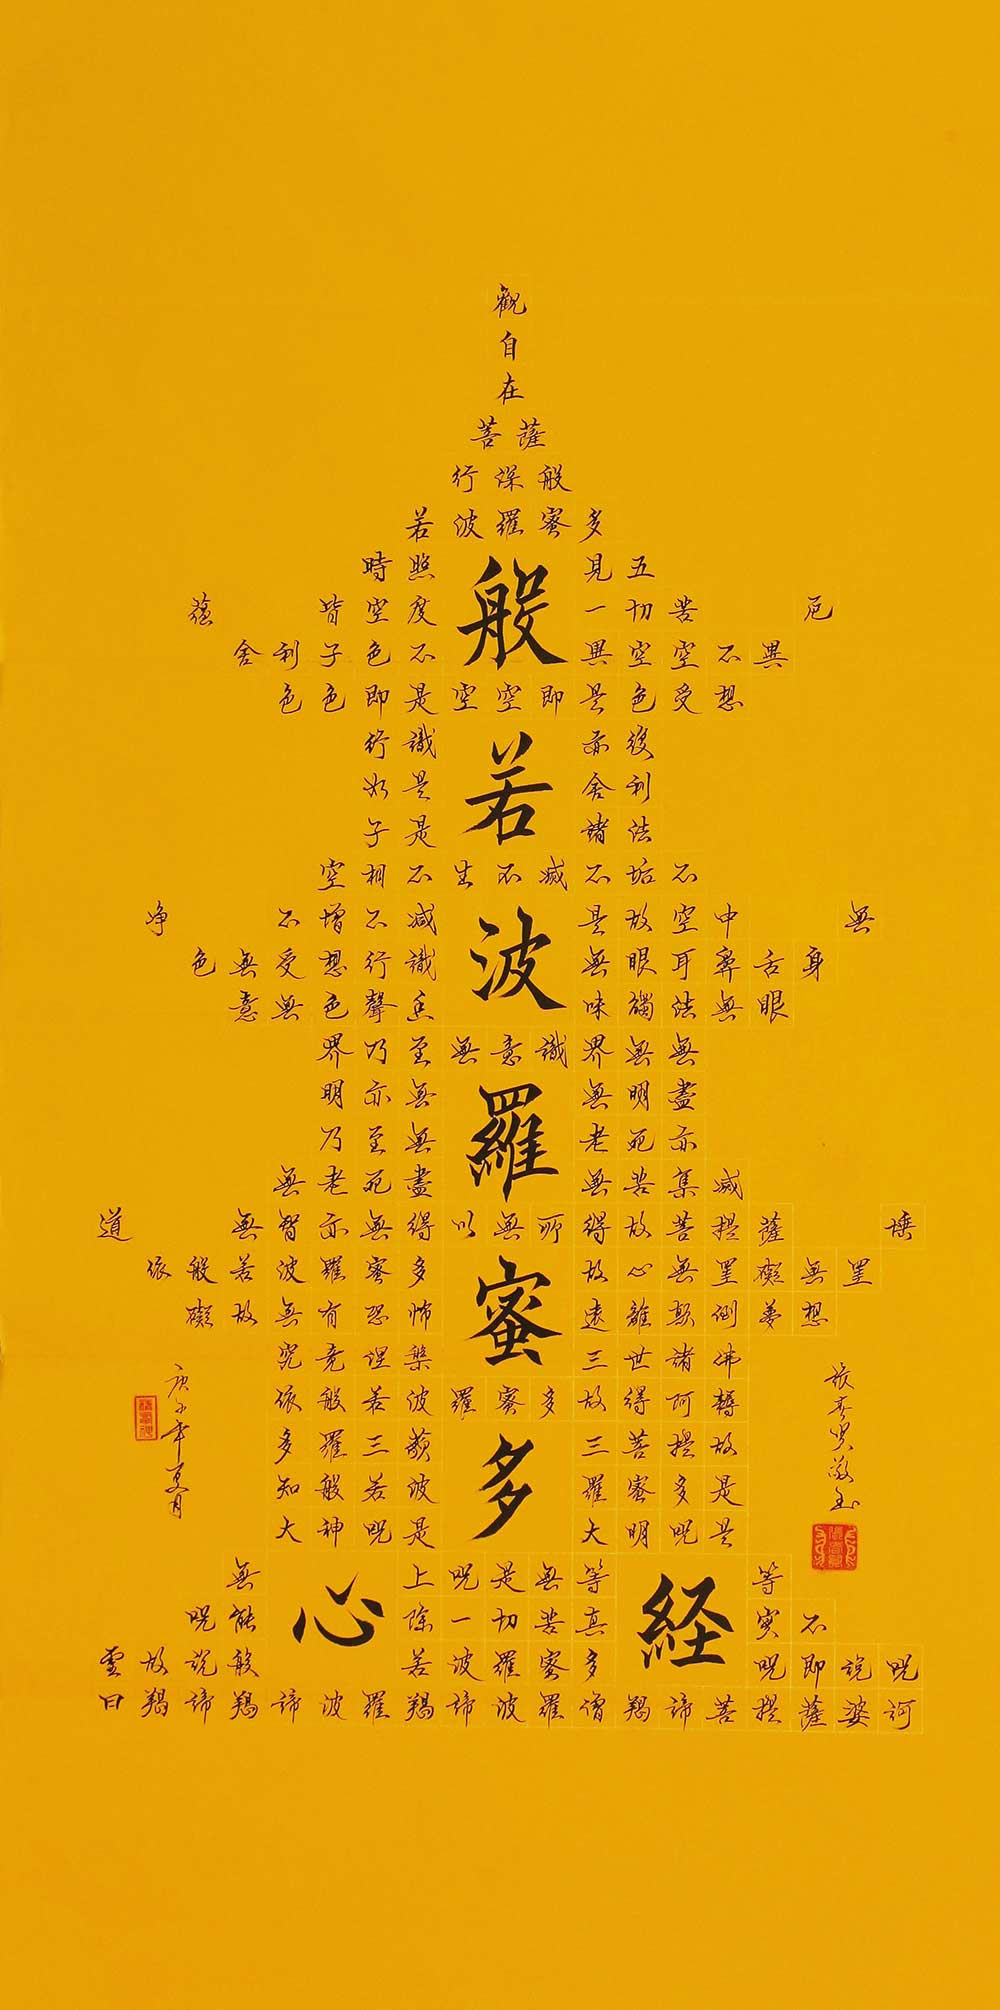 觀
自
在
菩薩
行深般
若波羅蜜多
時照 見五
蘊 皆空度 一切苦 厄
舍利子色不 異空空不異
色色即是空空即是色受想
行識 亦復
如是 舍利
子是 諸法
空相不生不滅不垢不
净 不增不減 是故空中 無
色無受想行識 無眼耳鼻舌身
意無色聲香 味觸法無眼
界乃至無意識界無無
明亦無 無明盡
乃至無 老死亦
無老死盡 無苦集滅
道 無智亦無得以無所得故菩提薩 埵
依般若波羅蜜多 故心無罣礙無罣
礙故無有恐怖 遠離顛倒夢想
究竟涅槃 三世諸佛
依般若波羅蜜多故得阿耨
多羅三藐 三菩提故
知般若波 羅蜜多是
大神咒是 大明咒是
無 上咒是無等 等
咒能 除一切苦真 實不
虛故說般 若波羅蜜多 咒即說咒
曰羯諦羯諦波羅羯諦波羅僧羯諦菩提薩婆訶
般若波羅蜜多心経
張春敬书
庚子年夏月